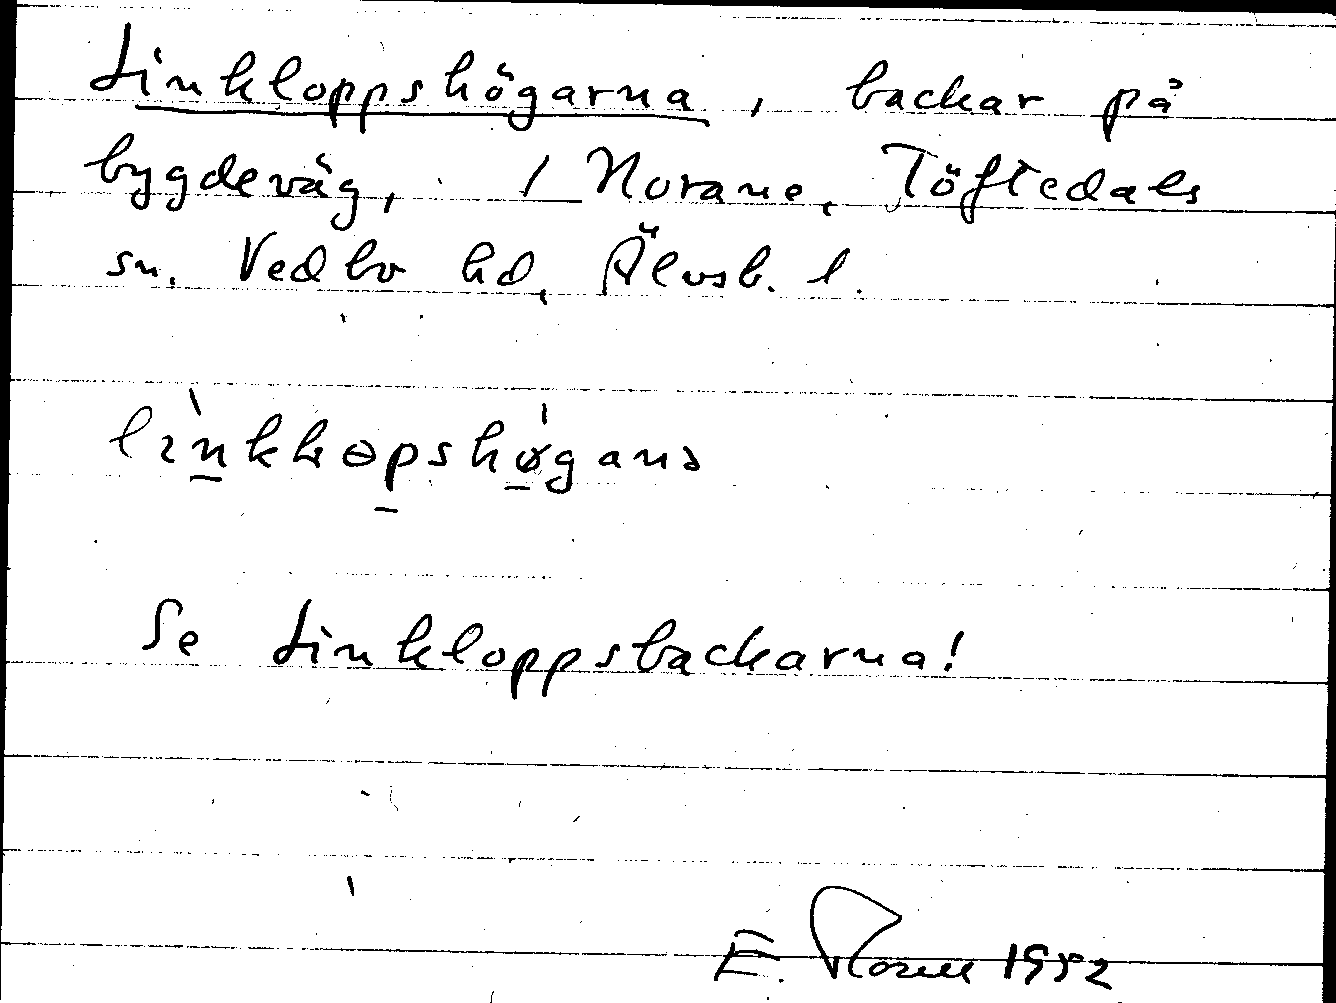 Linkloppshögarna, backar på
bygdeväg, 1 Norane, Töftedals
sn. Vedbo hd, Älvsb. l.
Se Linkloppsbackarna!
E. 1952